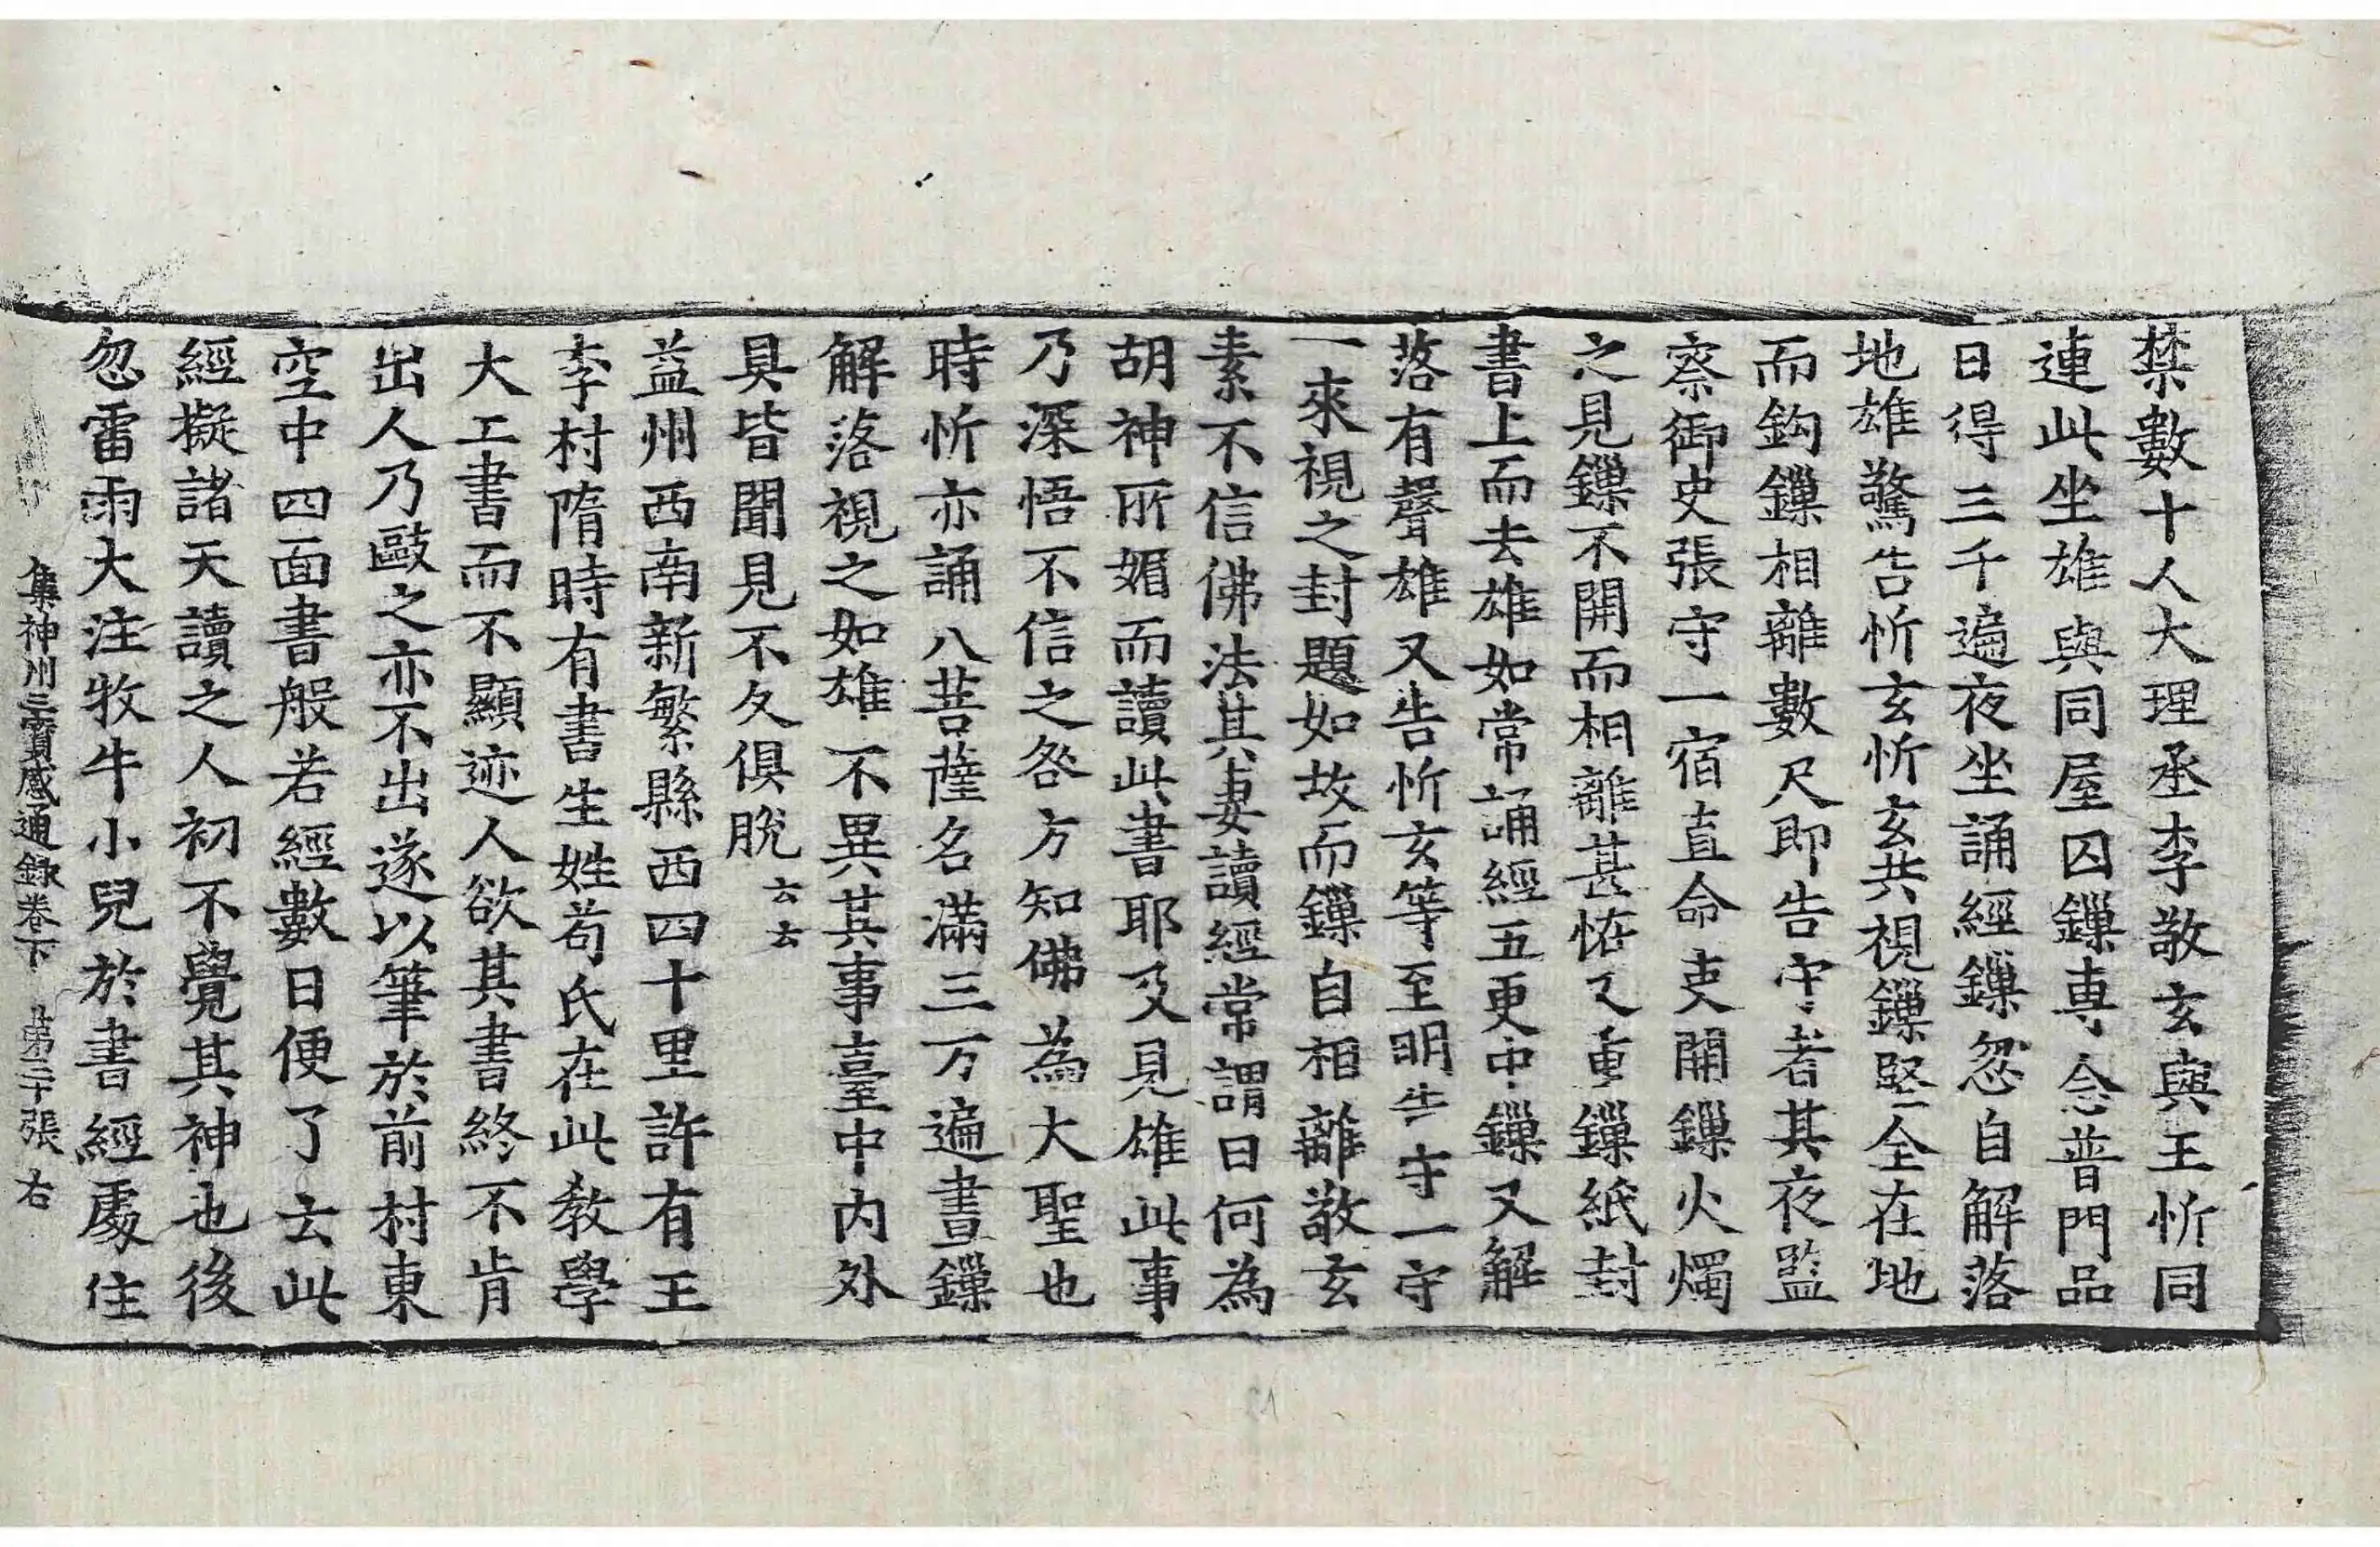 禁數十人大理丞李敬玄與王忻同
連此坐雄與同屋囚鏁專念普門品
日得三千遍夜坐誦經鏁忽自解落
地雄驚告忻玄忻玄共視鏁堅全在地
而鈎鏁相離數尺即告守者其夜監
察御史張守一宿直命吏開鏁火燭
之見鏁不開而相離甚恠又重鏁紙封
書上而去雄如常誦經五更中鏁又解
落有聲雄又告忻玄等至明告守一守
一來視之封題如故而鏁自相離敬玄
素不信佛法其妻讀經常謂曰何為
胡神所媚而讀此書耶及見雄此事
乃深悟不信之咎方知佛為大聖也
時忻亦誦八菩薩名滿三万遍晝鏁
解落視之如雄不異其事臺中内外
具皆聞見不久俱脫云云
益州西南新繁縣西四十里許有王
李村隋時有書生姓苟氏在此教學
大工書而不顯迹人欲其書終不肯
出人乃毆之亦不出遂以筆於前村東
空中四面書般若經數日便了云此
經擬諸天讀之人初不覺其神也後
忽雷雨大注牧牛小兒於書經處住
集神州三寶感通錄卷下 第二十張 右